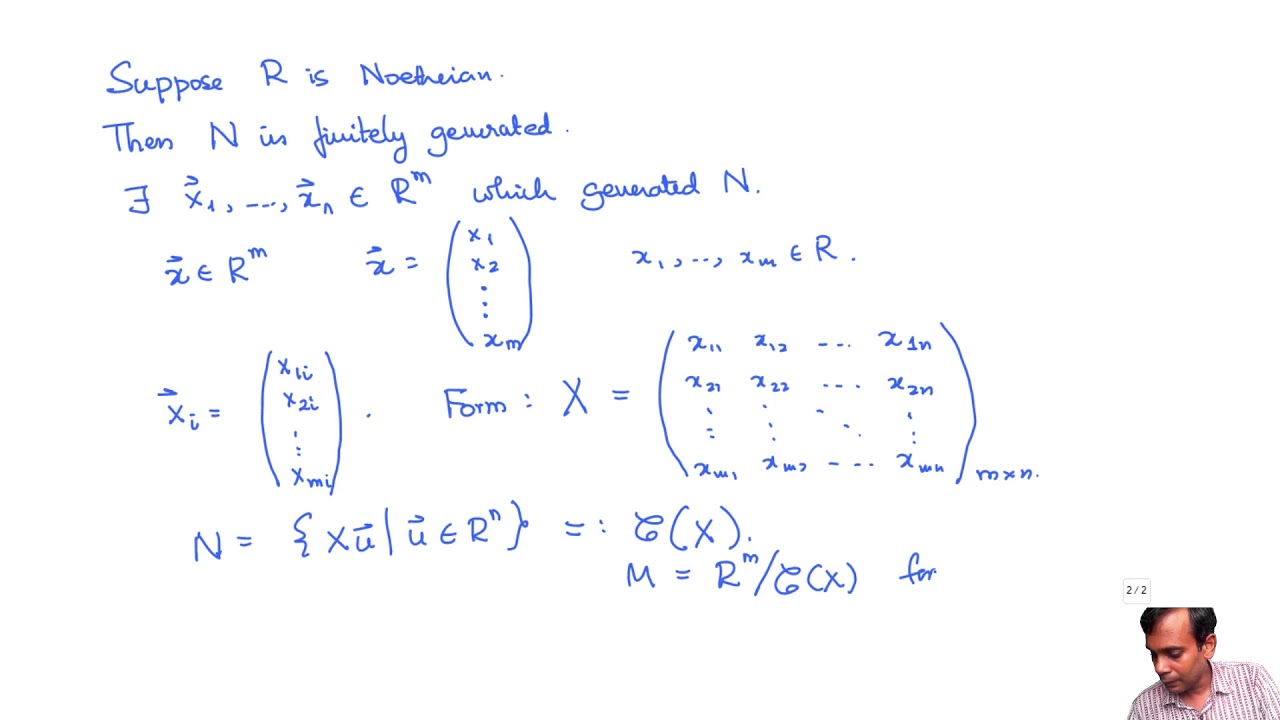 Suppose R is Noetherian.
Then N is finitely generated.
∃ x⃗₁, ..., x⃗ₙ ∈ Rᵐ which generated N.
x⃗ ∈ Rᵐ x⃗ = (x₁ x₂ ⋮ xₘ) x₁, .., xₘ ∈ R.
x⃗ᵢ = (x₁ᵢ x₂ᵢ ⋮ xₘᵢ). Form : X = (x₁₁ x₁₂ --- x₁ₙ
x₂₁ x₂₂ ... x₂ₙ
⋮ ⋮ ⋱ ⋮
xₘ₁ xₘ₂ --.. xₘₙ) m×n.
N = {Xu⃗ | u⃗ ∈ Rⁿ} =: 𝒞(X).
M = Rᵐ/𝒞(X) for
2 / 2